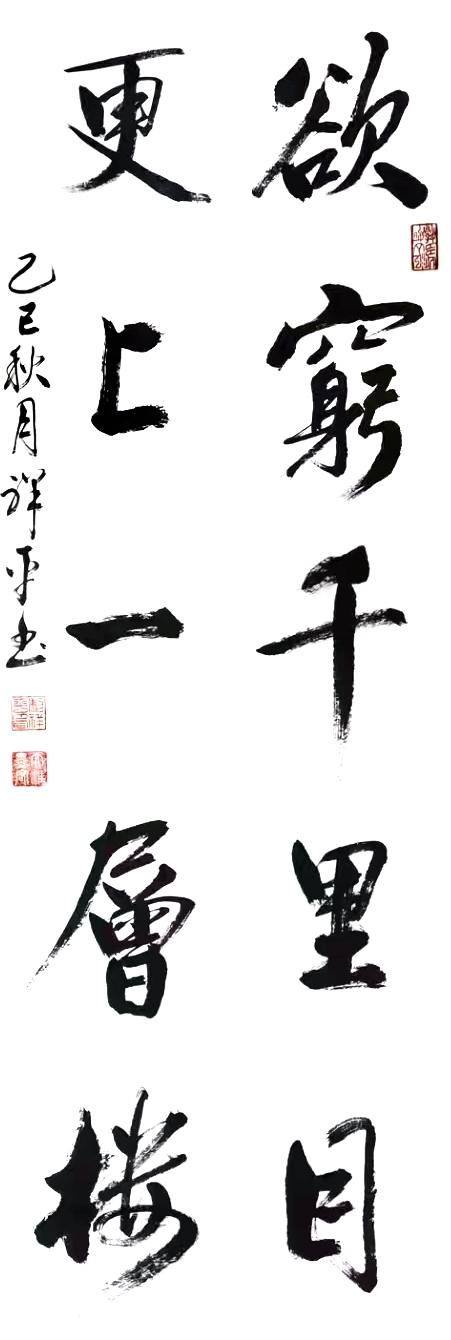 欲窮千里目
更上一層楼
乙巳秋月祥平书